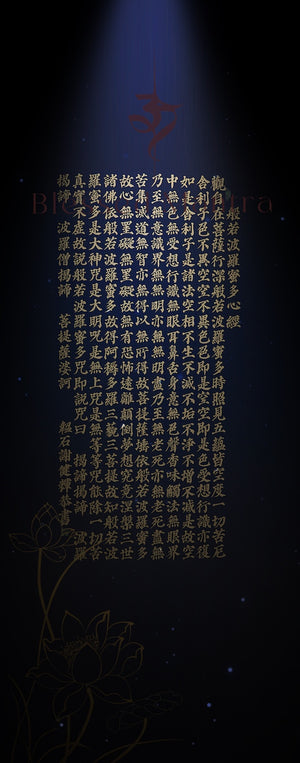 般若波羅蜜多心經
觀自在菩薩行深般若波羅蜜多時照見五蘊皆空度一切苦厄
舍利子色不異空空不異色色即是空空即是色受想行識亦復
如是舍利子是諸法空相不生不滅不垢不淨不增不減是故空
中無色無受想行識無眼耳鼻舌身意無色聲香味觸法無眼界
乃至無意識界無無明亦無無明盡乃至無老死亦無老死盡無
苦集滅道無智亦無得以無所得故菩提薩埵依般若波羅蜜多
故心無罣礙無罣礙故無有恐怖遠離顛倒夢想究竟涅槃三世
諸佛依般若波羅蜜多故得阿耨多羅三藐三菩提故知般若波
羅蜜多是大神咒是大明咒是無上咒是無等等咒能除一切苦
真實不虛故說般若波羅蜜多咒即說咒曰 揭諦揭諦 波羅
揭諦 波羅僧揭諦 菩提薩婆訶 石謝健輝恭書